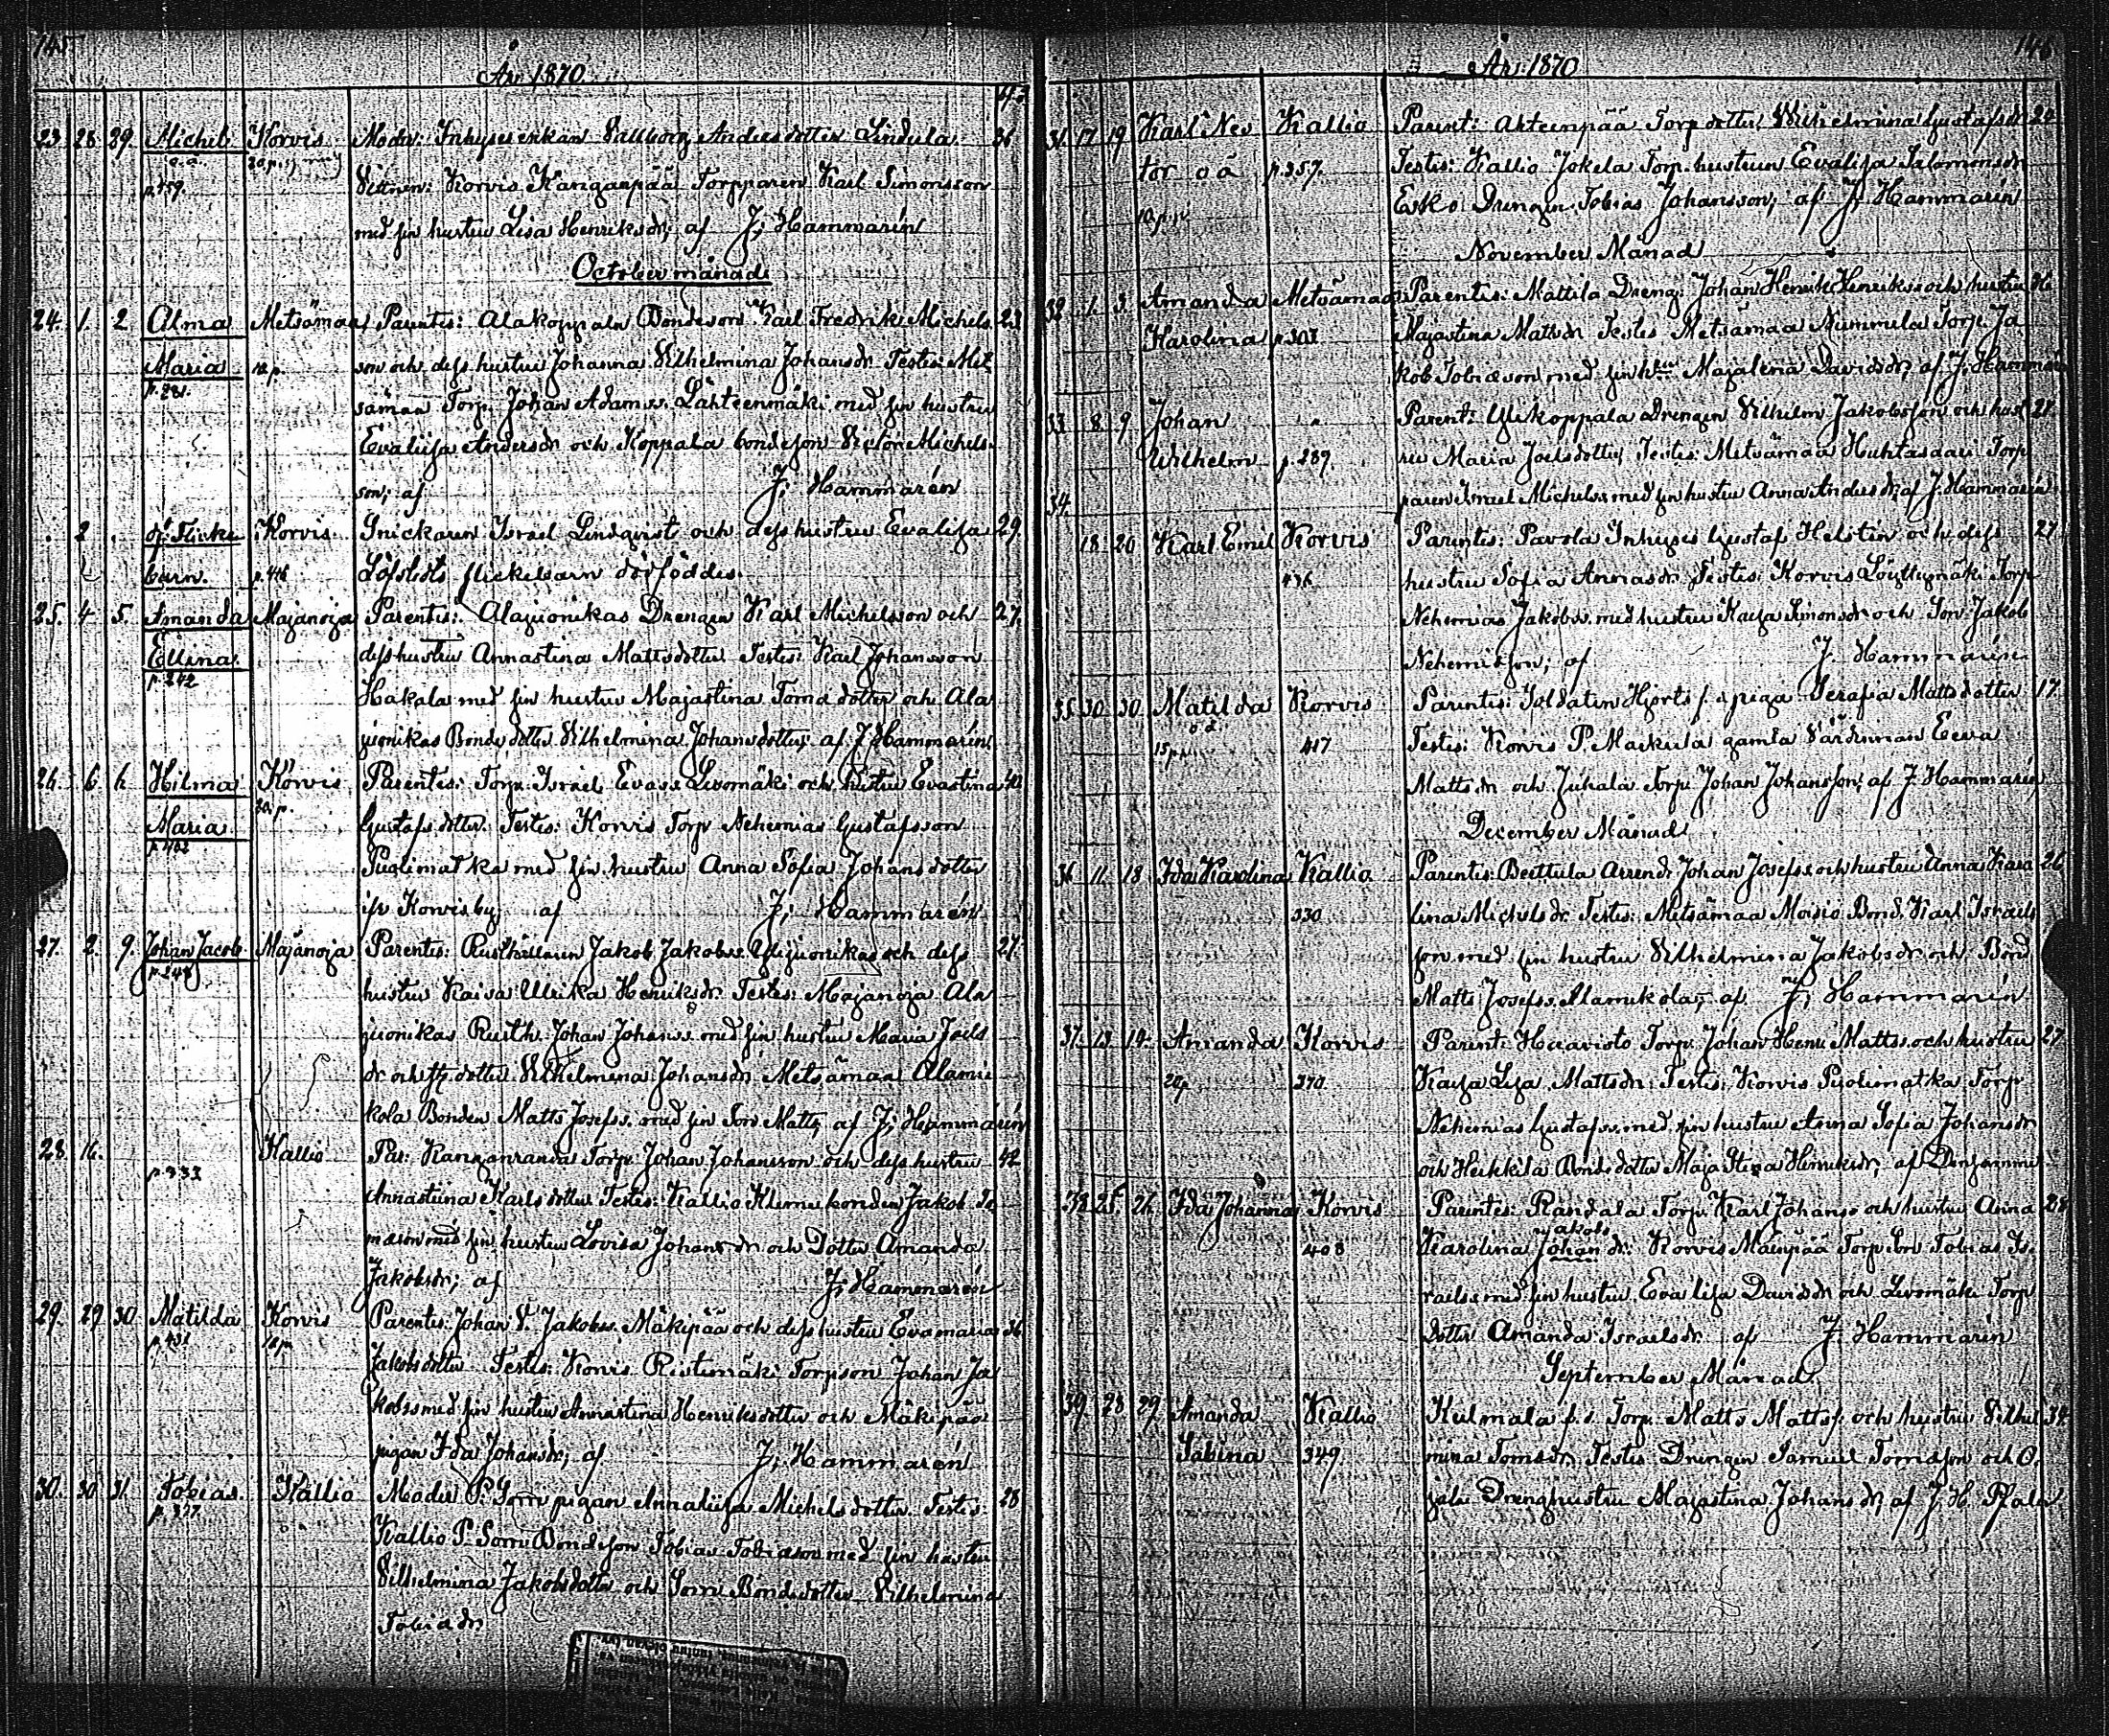 145
År 1870
23. 28 29. Michel Korvis Moder: Inhyses enkan Wallborg Andersdotter Lindula. 36
o.ä.
p. 459. Vittnen: Korvis Kangaanpää Torpparen Karl Simonsson
med sin hustru Lisa Henriksdr; af J; Hammarén
October månad.
24. 1. 2 Alma Metsämaa Parentes: Alakoppala Bondeson Karl Fredrik Michels 23
Maria 10p. son och dess hustru Johanna Vilhelmina Johansdr Testes: Met
p. 281. sämaa Torp. Johan Adamss. Lähteenmäki med sin hustru
Evalisa Andersdr och Koppala bondeson Victor Michels
son; af J; Hammarén
2 df: Flicke Korvis Snickaren Israel Lindqvist och dess hustru Evalisa 29.
barn. p. 446 Löfstedts flickebarn dödföddes.
25. 4 5. Amanda Majanoja Parentes: Alajuonikas Drengen Karl Michelsson och 27.
Ellina dess hustru Annastina Mattsdotter Testes: Karl Johansson
p. 242
Hakala med sin hustru Majastina Tomadotter och Ala
juonikas Bondedotter Vilhelmina Johansdotter; af J Hammarén
26. 6 Hilma Korvis Parentes: Torp. Israel Evass. Livomäki och hustru Evastina 40
20p.
Maria Gustafsdotter. Testes: Korvis Torp Nehemias Gustafsson
p. 402
med sin hustru Anna Sofia Johansdotter
Korvis by; af J; Hammarén
27. 2. 9. Johan Jacob Majanoja Parentes: Rusthållaren Jakob Jakobss. Ylijuonikas och dess 27.
p. 244
hustru Kaisa Ulrika Henriksdr Testes: Majanoja Ala
juonikas Rusth. Johan Johanss. med sin hustru Maria Joels
dr och dotter Vilhelmina Johansdr, Metsämaa Alami
kola Bonden Matts Josefss. med sin Son Matts; af J; Hammarén
28. 16. Kallio Par: Kanganranda Torp. Johan Johansson och dess hustru 42
p. 333
Annastina Karlsdotter Testes: Kallio Kleme bonden Jakob To
masson med sin hustru Lovisa Johansdr och Dotter Amanda
Jakobsdr; af J; Hammarén
29. 29 30 Matilda Korvis Parentes: Johan V. Jakobss. Mäkipää och dess hustru Evamaria 36
p. 431 10p
Jakobsdotter Testes: Korvis Ristimäki Torpson Johan Ja
kobss med sin hustru Annastina Henriksdotter och Mäkipää
pigan Ida Johansdr; af J; Hammarén
30. 30 31. Tobias. Kallio Moder P: Sorri pigan Annalisa Michelsdotter Testes: 28
p. 327.
Kallio P. Sorri Bondeson Tobias Tobiasson med sin hustru
Vilhelmina Jakobsdotter och Sorri Bondedotter Vilhelmina
Tobiasdr
146
År: 1870
31. 17 19 Karl Nes Kallio Parent: Ahteenpää Torpdotter Wilhelmina Gustafsdr 24
tor o ä p. 357. Testes: Kallio Jokela Torp. hustrun Evalisa Salomonsdr
Esko Drengen Tobias Johansson; af J; Hammarén
November Månad
32 1. 3. Amanda Metsämaa Parentes: Mattila Dreng: Johan Henrik Henrikss och hustru 36
Karolina p. 303 Majastina Mattsdr Testes Metsämaa Nummela Torp. Ja
kob Tobiasson med sin hru Majalena Davidsdr; af J; Hammarén
33 8 9 Johan " Parent: Ylikoppala Drengen Vilhelm Jakobsson och hust 21
Wilhelm p. 289. ru Maria Joelsdotter, Testes: Metsämaa Huhtasaari Torp
34. paren Israel Michelss med sin hustru Anna Andersdr; af J. Hammarén
18 20 Karl Emil Korvis Parentes: Pavola Inhyses Gustaf Helstén och dess 27
436 hustru Sofia Annasdr. Testes: Korvis Torp
Nehemias Jakobss. med hustru Kaisa Simonsdr och Son Jakob
Nehemiasson; af J. Hammarén
35 30 30 Matilda Korvis Parentes: Soldaten Hjorts piga Serafia Mattsdotter 17.
o ä
417 Testes: Korvis P. Markula gamla Värdinnan Eeva
Mattsdr och Juhala Torp. Johan Johansson; af J. Hammarén
December Månad
36 11 18 Ida Karolina Kallio Parentes: Berttula Arrend. Johan Josefss och hustru Anna Karo 26
330 lina Michelsdr. Testes: Metsämaa Moisio Bond. Karl Israels
son med sin hustru Vilhelmina Jakobsdr och Bond
Matts Josefss. Alamikola; af J; Hammarén
37. 13. 14. Amanda Korvis Parent: Haavisto Torp. Johan Henr. Mattss. och hustru 27
20p 370. Kaisa Lisa Mattsdr. Testes: Korvis Torp
Nehemias Gustafss. med sin hustru Anna Sofia Johansdr
och Heikkilä Bondedotter Maja Stina Henriksdr; af
38 25 26 Ida Johanna Korvis Parentes: Randala Torp. Karl Johanss och hustru Anna 28
Jakobs
408 Karolina Johan dr: Korvis Mäenpää Torp Son Tobias Is
raelss med sin hustru Eva Lisa Davidsdr och Livomäki Torp
dotter Amanda Israelsdr. af J. Hammarén
September Månad
39. 28 29. Amanda Kallio Kulmala Torp. Matts Mattss. och hustru Vilhel 34
Sabina 349 mina Tomsdr. Testes Drengen Samuel Tomasson och O
jala Drenghustru Majastina Johansdr; af J. H.